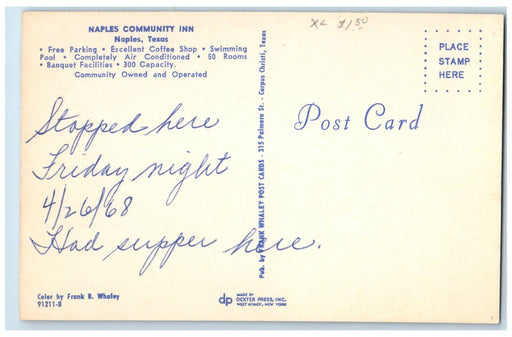 NAPLES COMMUNITY INN
Naples, Texas
• Free Parking • Excellent Coffee Shop • Swimming
Pool • Completely Air Conditioned • 50 Rooms
• Banquet Facilities • 300 Capacity.
Community Owned and Operated
XL $1.50
PLACE
STAMP
HERE
Post Card
Stopped here
Friday night
4/26/68
Had supper here.
Pub. by FRANK WHALEY POST CARDS - 315 Palmero St. - Corpus Christi, Texas
Color by Frank B. Whaley
91211-B
dp
MADE BY
DEXTER PRESS, INC.
WEST NYACK, NEW YORK